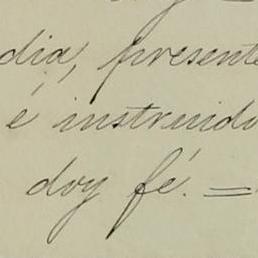 dia, present
é instruido
doy fé. =